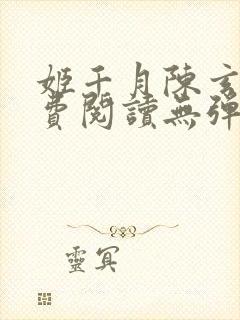 姬千月陳玄
費閱讀無彈
靈冥